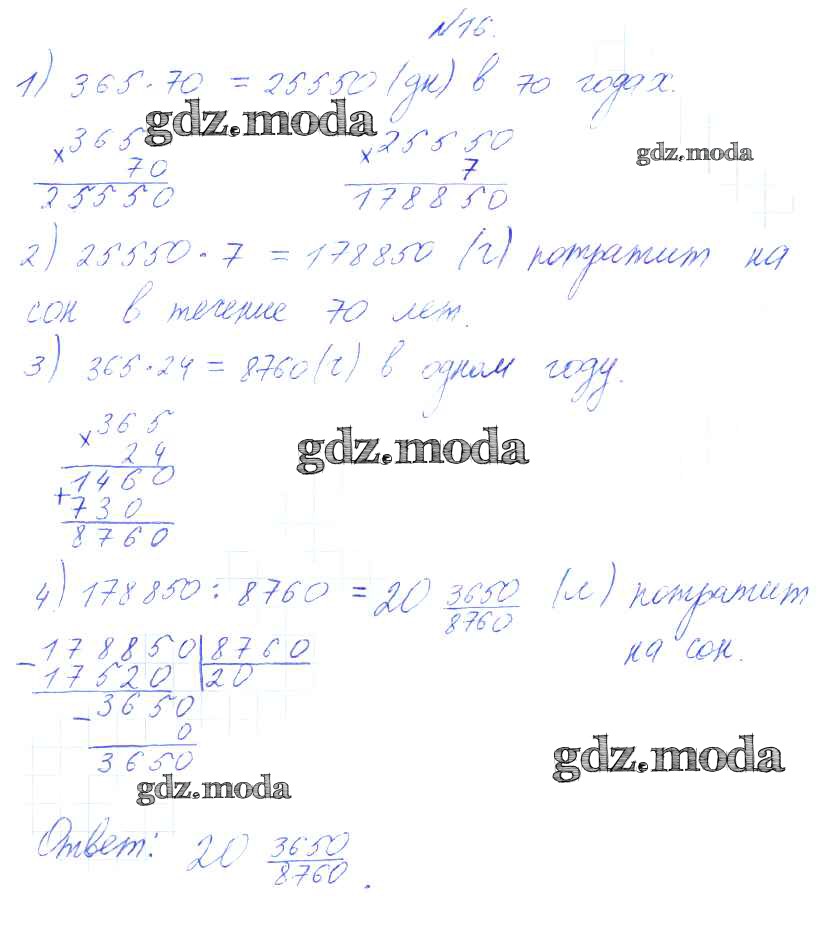 №16.
1) 365·70 = 25550 (дн) в 70 годах.
gdz.moda
× 365
70
25550
× 25550
7
178850
gdz.moda
2) 25550 · 7 = 178850 (ч) потратит на
сон в течение 70 лет.
3) 365·24 = 8760 (ч) в одном году.
× 365
24
1460
+ 730
8760
gdz.moda
4) 178850 : 8760 = 20 3650/8760 (л) потратит
на сон.
- 178850 | 8760
17520 | 20
- 3650
0
3650
gdz.moda
gdz.moda
Ответ: 20 3650/8760.